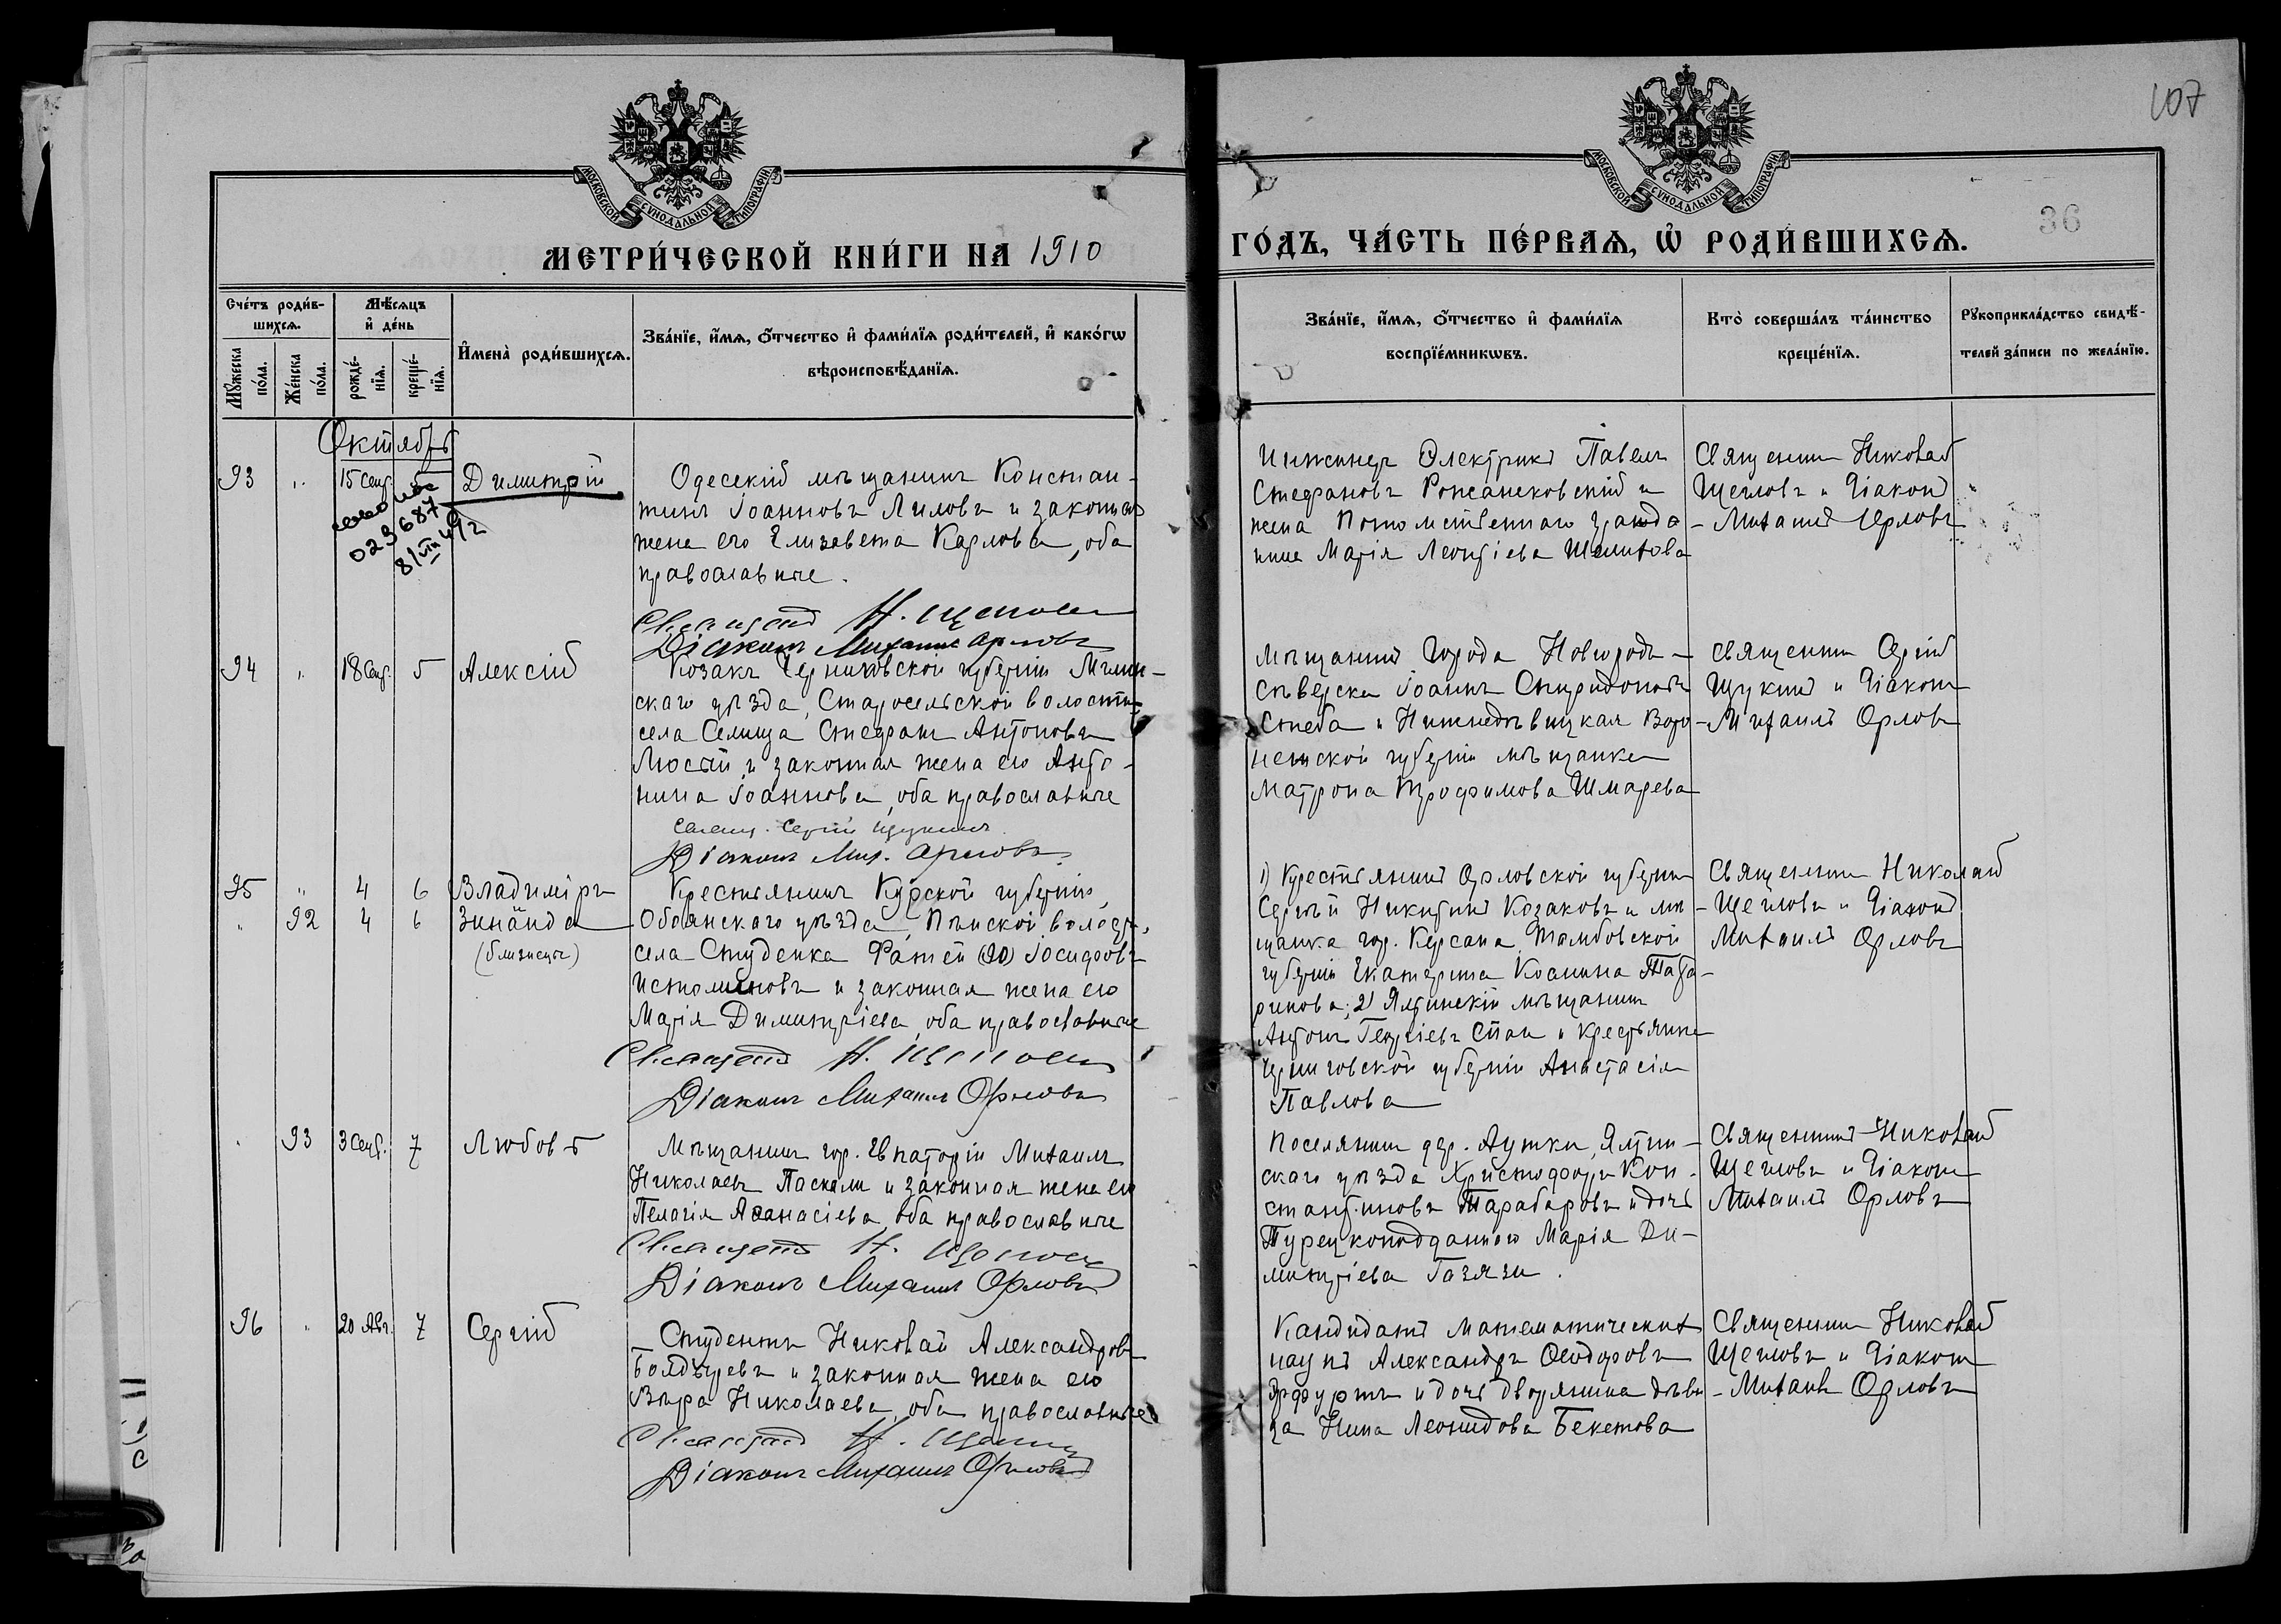 107
36
МОСКОВСКОЙ СѴНОДАЛЬНОЙ ТИПОГРАФІИ
МОСКОВСКОЙ СѴНОДАЛЬНОЙ ТИПОГРАФІИ
МЕТРИ́ЧЕСКОЙ КНИ́ГИ НА 1910
ГО́ДЪ, ЧА́СТЬ ПЕ́РВАѦ, Ѿ РОДИ́ВШИХСѦ.
Сче́тъ роди́в-
шихсѧ.
Мꙋ́жеска по́ла.
Же́нска по́ла.
Мѣ́сѧцъ
и҆ де́нь
рожде́-
нїѧ.
креще́-
нїѧ.
И҆мена̀ роди́вшихсѧ.
Зва́нїе, и҆́мѧ, ѻ҆́тчество и҆ фами́лїѧ роди́телей, и҆ како́гѡ
вѣроисповѣ́данїѧ.
Зва́нїе, и҆́мѧ, ѻ҆́тчество и҆ фами́лїѧ
воспрїе́мникѡвъ.
Кто̀ соверша́лъ та́инство
креще́нїѧ.
Рꙋкоприкла́дство свидѣ́-
телей за́писи по жела́нїю.
Октябрь
93 " 15 Сент. 5 Димитрій
023687
8/VIII 492
Одесскій мѣщанинъ Констан-
тинъ Іоанновъ Лиловъ и законная
жена его Елизавета Карлова, оба
православные.
Священникъ Н. Щегловъ
Діаконъ Михаилъ Орловъ
Инженеръ Электрикъ Павелъ
Стефановъ Рожанковскій и
жена Потомственнаго гражда-
нина Марія Леонтіева Шелитова
Священникъ Николай
Щегловъ и Діаконъ
Михаилъ Орловъ
94 " 18 Сент. 5 Алексій
Козакъ Черниговской губерніи Мглин-
скаго уѣзда, Старосельской волости
села Селища Стефанъ Антоновъ
Лютый и законная жена его Анто-
нина Іоаннова, оба православные
Священ. Сергій Щукинъ
Діаконъ Мих. Орловъ
Мѣщанинъ Города Новгородъ-
Сѣверска Іоаннъ Спиридоновъ
Скеба и Нижнедѣвицкая Воро-
нежской губерніи мѣщанка
Матрона Трофимова Шмарева
Священникъ Сергій
Щукинъ и Діаконъ
Михаилъ Орловъ
95 " 4 6 Владиміръ
" 92 4 6 Зинаида
(близнецы)
Крестьянинъ Курской губерніи,
Обоянскаго уѣзда, Пѣнской волости,
села Студенка Фатей (20) Іосифовъ
Истоминовъ и законная жена его
Марія Димитріева, оба православные
Священникъ Н. Щегловъ
Діаконъ Михаилъ Орловъ
1) Крестьянинъ Орловской губерніи
Сергѣй Никитинъ Козаковъ и мѣ-
щанка гор. Кирсана, Тамбовской
губерніи Екатерина Космина Тата-
ринова; 2) Ялтинскій мѣщанинъ
Антонъ Георгіевъ Стан и крестьянка
Черниговской губерніи Анастасія
Павлова
Священникъ Николай
Щегловъ и Діаконъ
Михаилъ Орловъ
" 93 3 Сент. 7 Любовь
Мѣщанинъ гор. Евпаторіи Михаилъ
Николаевъ Паскали и законная жена его
Пелагія Аѳанасіева, оба православные
Священникъ Н. Щегловъ
Діаконъ Михаилъ Орловъ
Поселянинъ дер. Аутки, Ялтин-
скаго уѣзда Христофоръ Кон-
стантиновъ Тарабаровъ и дочь
Турецкоподданнаго Марія Ди-
митріева Газязи.
Священникъ Николай
Щегловъ и Діаконъ
Михаилъ Орловъ
96 " 20 Авг. 7 Сергій
Студентъ Николай Александровъ
Бояджіевъ и законная жена его
Вѣра Николаева, оба православные
Священникъ Н. Щегловъ
Діаконъ Михаилъ Орловъ
Кандидатъ математическихъ
наукъ Александръ Ѳеодоровъ
Эрфуртъ и дочь дворянина дѣви-
ца Нина Леонидова Бекетова
Священникъ Николай
Щегловъ и Діаконъ
Михаилъ Орловъ